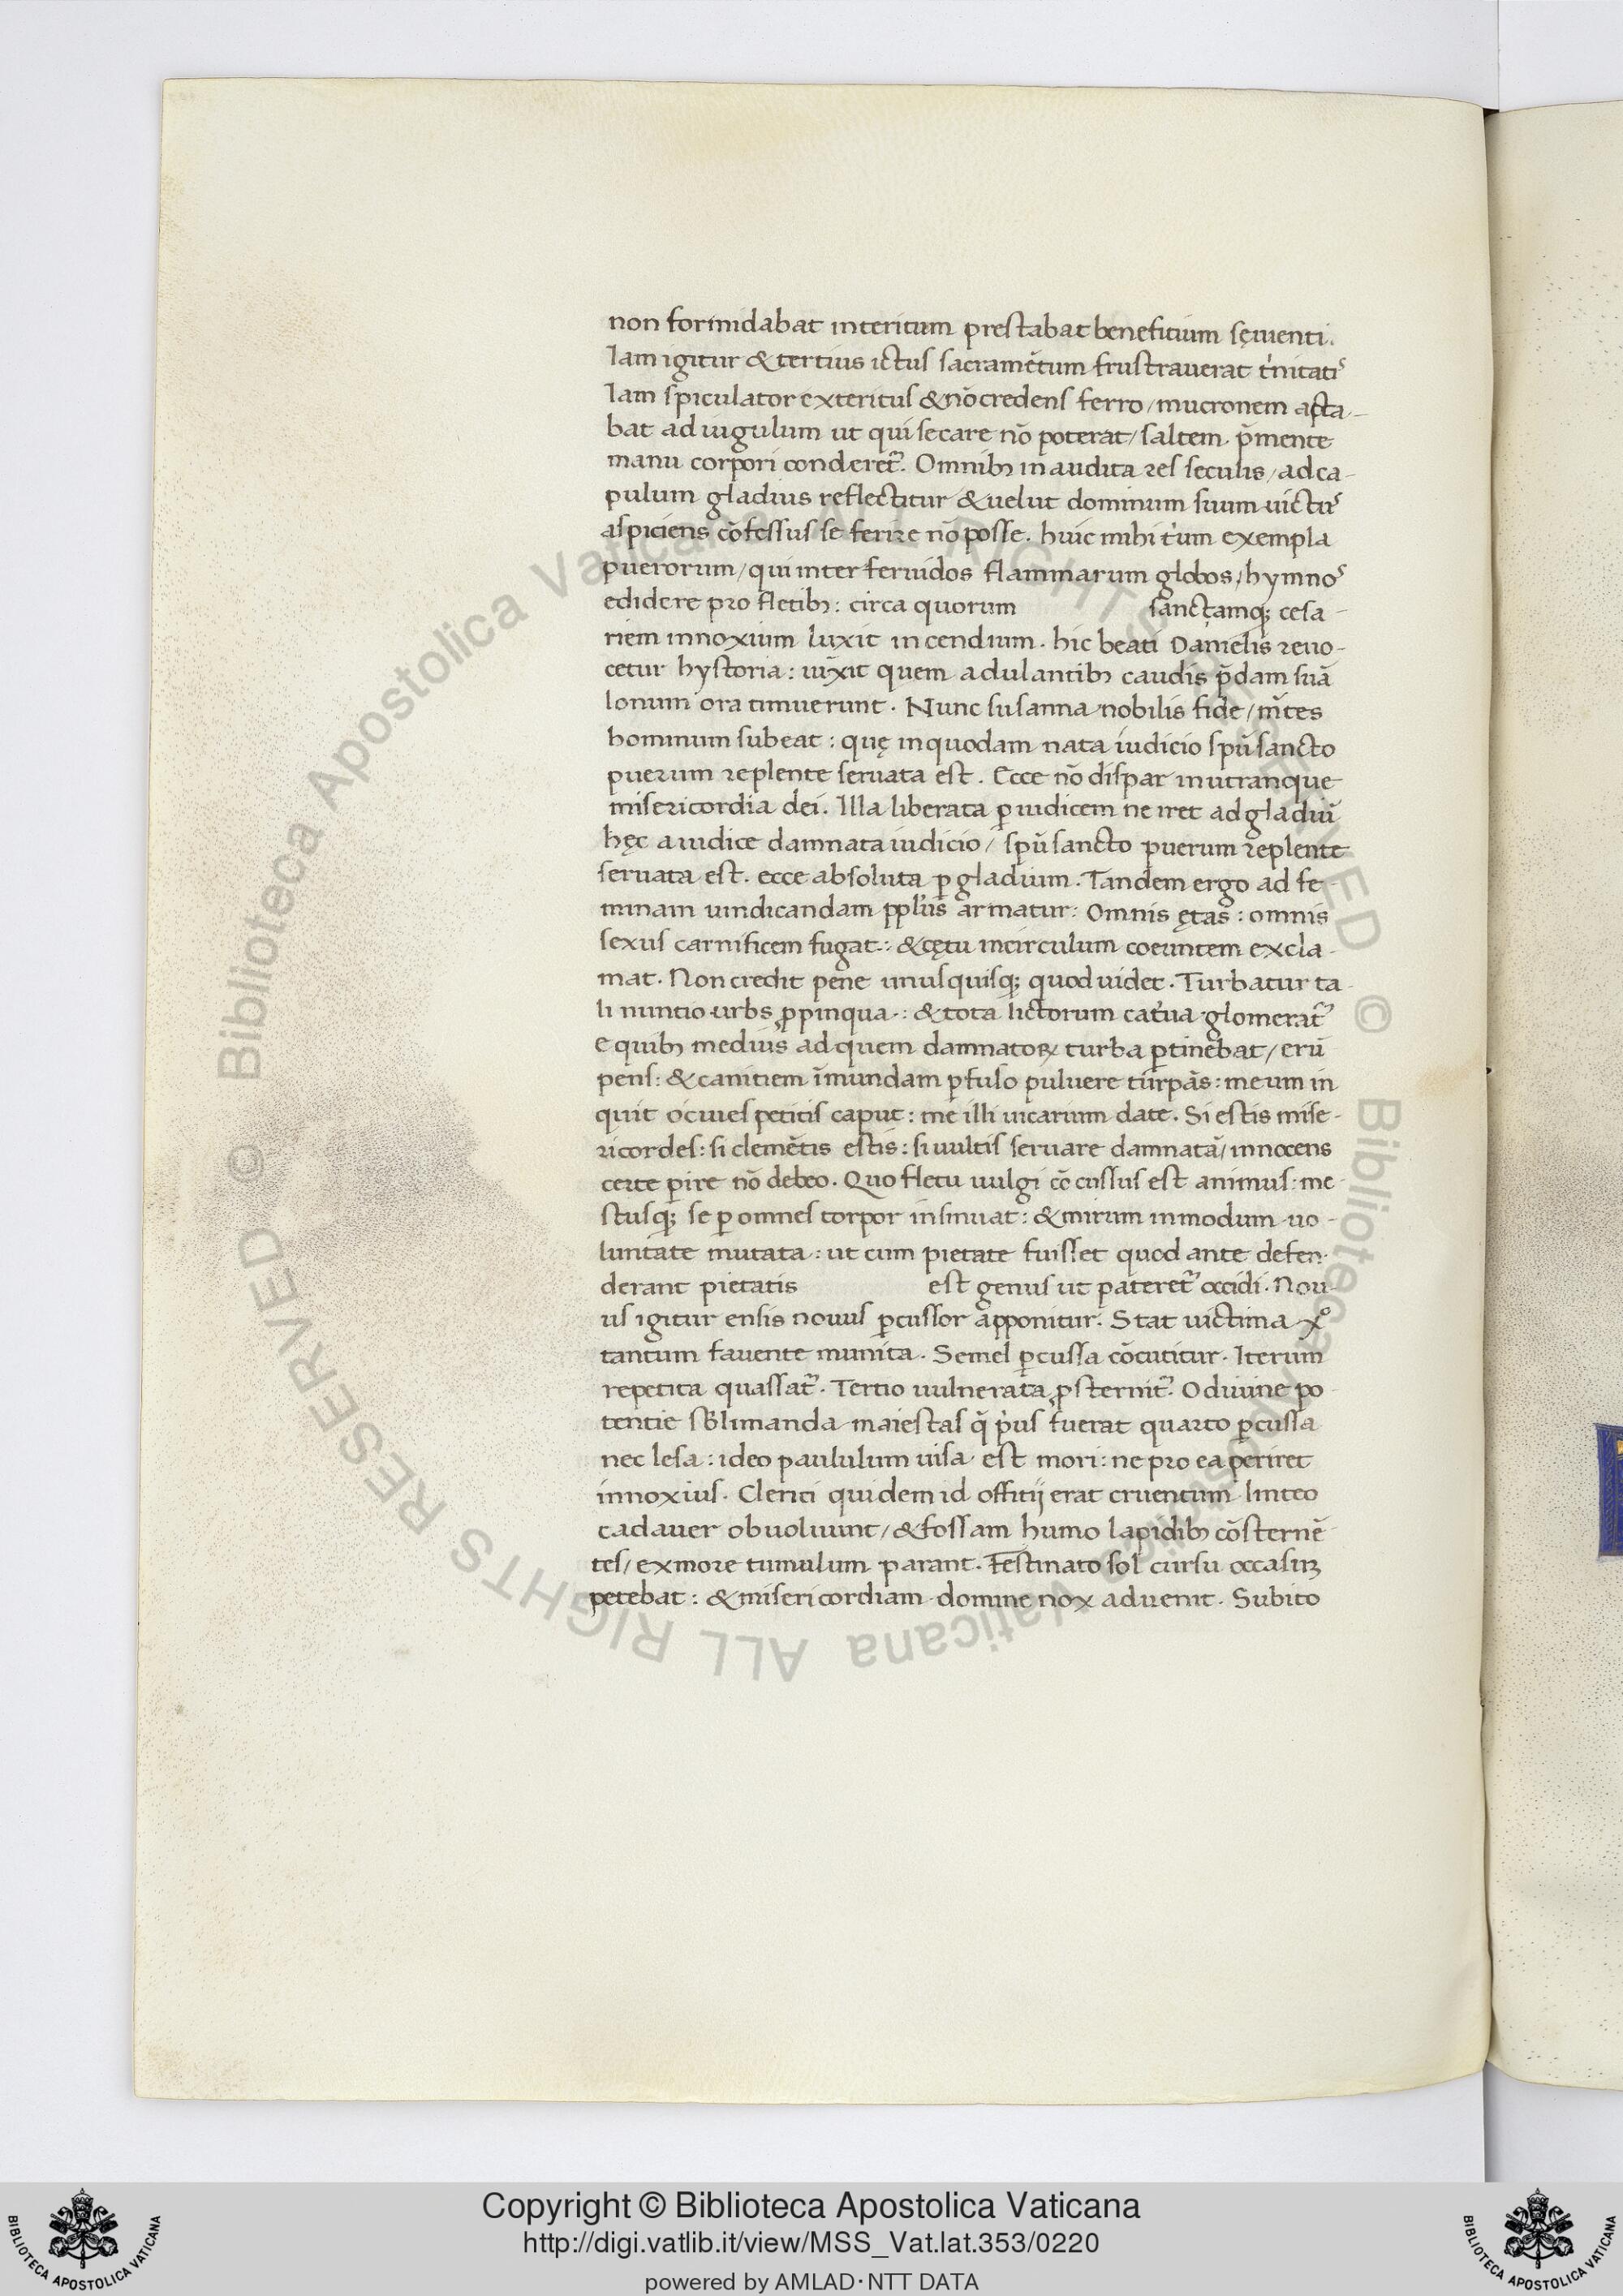 non formidabat interitum prestabat benefitium sęuienti.
Iam igitur & tertius ictus sacramẽtum frustrauerat tͥnitatiˢ
Iam spiculator exteritus & nõ credens ferro / mucronem apta-
bat ad iugulum ut qui secare nõ poterat / saltem p̃mente
manu corpori conderet᷑. Omnibꝫ inaudita res seculis / ad ca-
pulum gladius reflectitur & uelut dominum suum uictuˢ
aspiciens cõfessus se ferire nõ posse. huic mihi tͥum exempla
puerorum / qui inter feruidos flammarum globos / hymnoˢ
edidere pro fletibꝫ : circa quorum sanctamqꝫ cesa-
riem innoxium luxit incendium. hic beati Danielis reuo-
cetur hystoria : iũxit quem adulantibꝫ caudis p̃dam suã
lonum ora timuerunt. Nunc susanna nobilis fide / m̃tes
hominum subeat : quę in quodam nata iudicio spũ sancto
puerum replente seruata est. Ecce nõ dispar in utranque
misericordia dei. Illa liberata ꝑ iudicem ne iret ad gladiũ
hęc a iudice damnata iudicio / spũ sancto puerum replente
seruata est. ecce absoluta ꝑ gladium. Tandem ergo ad fe-
minam uindicandam pplus armatur : Omnis ętas : omnis
sexus carnificem fugat : & cętu in circulum coeuntem excla-
mat. Non credit pene unusquisqꝫ quod uidet. Turbatur ta-
li nuntio urbs ꝓpinqua : & tota lictorum catͥua glomerat᷑
e quibꝫ medius ad quem damnatoꝝ turba ꝑtinebat / erũ
pens : & canitiem ĩmundam ꝑfuso puluere turpãs : meum in
quit o ciues petitis caput : me illi uicarium date. Si estis mise-
ricordes : si clemẽtis estis : si uultis seruare damnatã / innocens
certe ꝑire nõ debeo. Quo fletu uulgi cõcussus est animus : me
stusqꝫ se ꝑ omnes torpor insinuat : & mirum in modum uo-
luntate mutata : ut cum pietate fuisset quod ante defen-
derant pietatis est genus ut pateret᷑ occidi. Nou-
us igitur ensis nouus ꝑcussor apponitur. Stat uictima xº
tantum fauente munita. Semel ꝑcussa cõcutitur. Iterum
repetita quassat᷑. Tertio uulnerata ꝓsternit᷑. O diuine po
tentie sb̃limanda maiestas q̃ pͥus fuerat quarto ꝑcussa
nec lesa : ideo paululum uisa est mori : ne pro ea periret
innoxius. Clerici quidem id offitij erat cruentum linteo
cadauer obuoluunt / & fossam humo lapidibꝫ cõsternẽ
tes / ex more tumulum parant. Festinato sol cursu occasuꝫ
petebat : & misericordiam domine nox aduenit. Subito
Copyright © Biblioteca Apostolica Vaticana
http://digi.vatlib.it/view/MSS_Vat.lat.353/0220
powered by AMLAD·NTT DATA